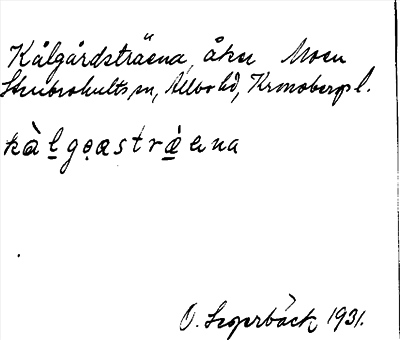 Kålgårdsträena, åker Moen
Stenbrohults sn, Allbo hd, Kronobergs l.
kàl̠gǫas​træ̠̀ena
O. 1931.